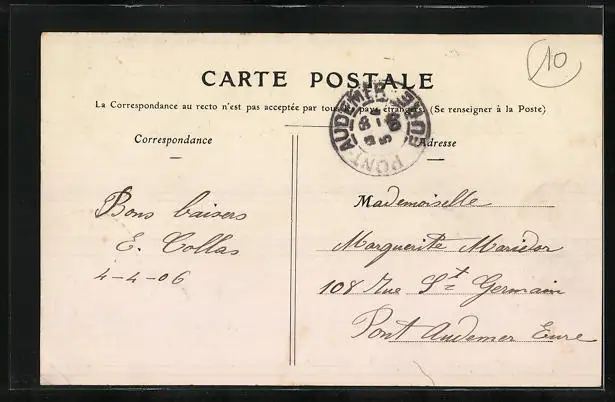 10
CARTE POSTALE
La Correspondance au recto n'est pas acceptée par tous les pays étrangers. (Se renseigner à la Poste)
PONT-AUDEMER EURE
Correspondance
Adresse
Bons baisers
E. Collas
4-4-06
Mademoiselle
Marguerite Maridor
108 Rue St Germain
Pont Audemer Eure